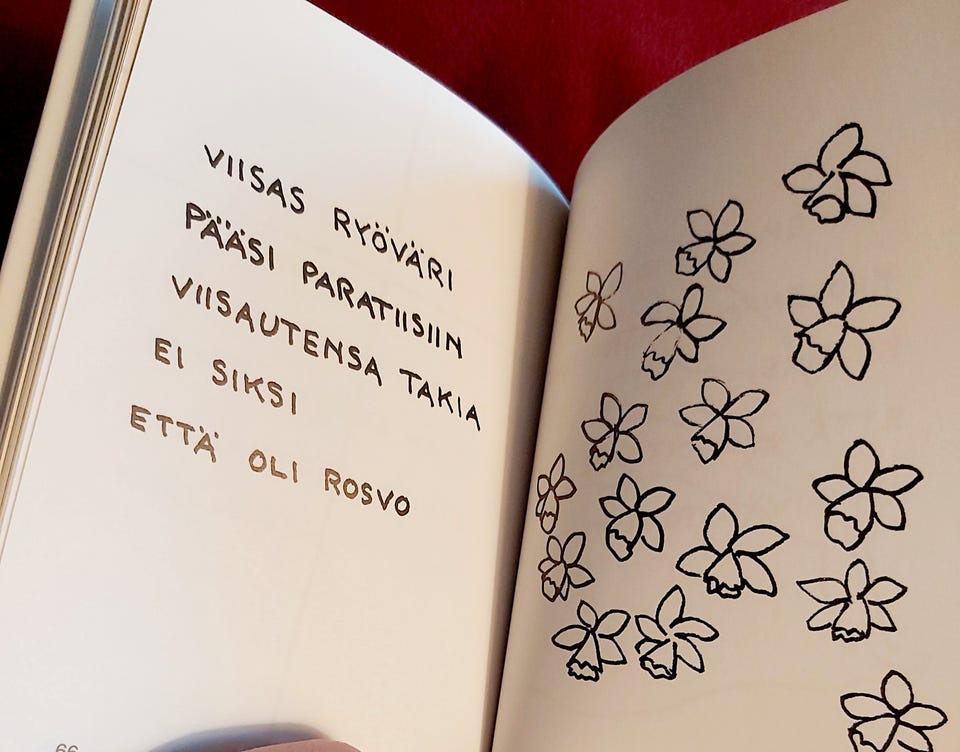 VIISAS RYÖVÄRI
PÄÄSI PARATIISIIN
VIISAUTENSA TAKIA
EI SIKSI
ETTÄ OLI ROSVO
66